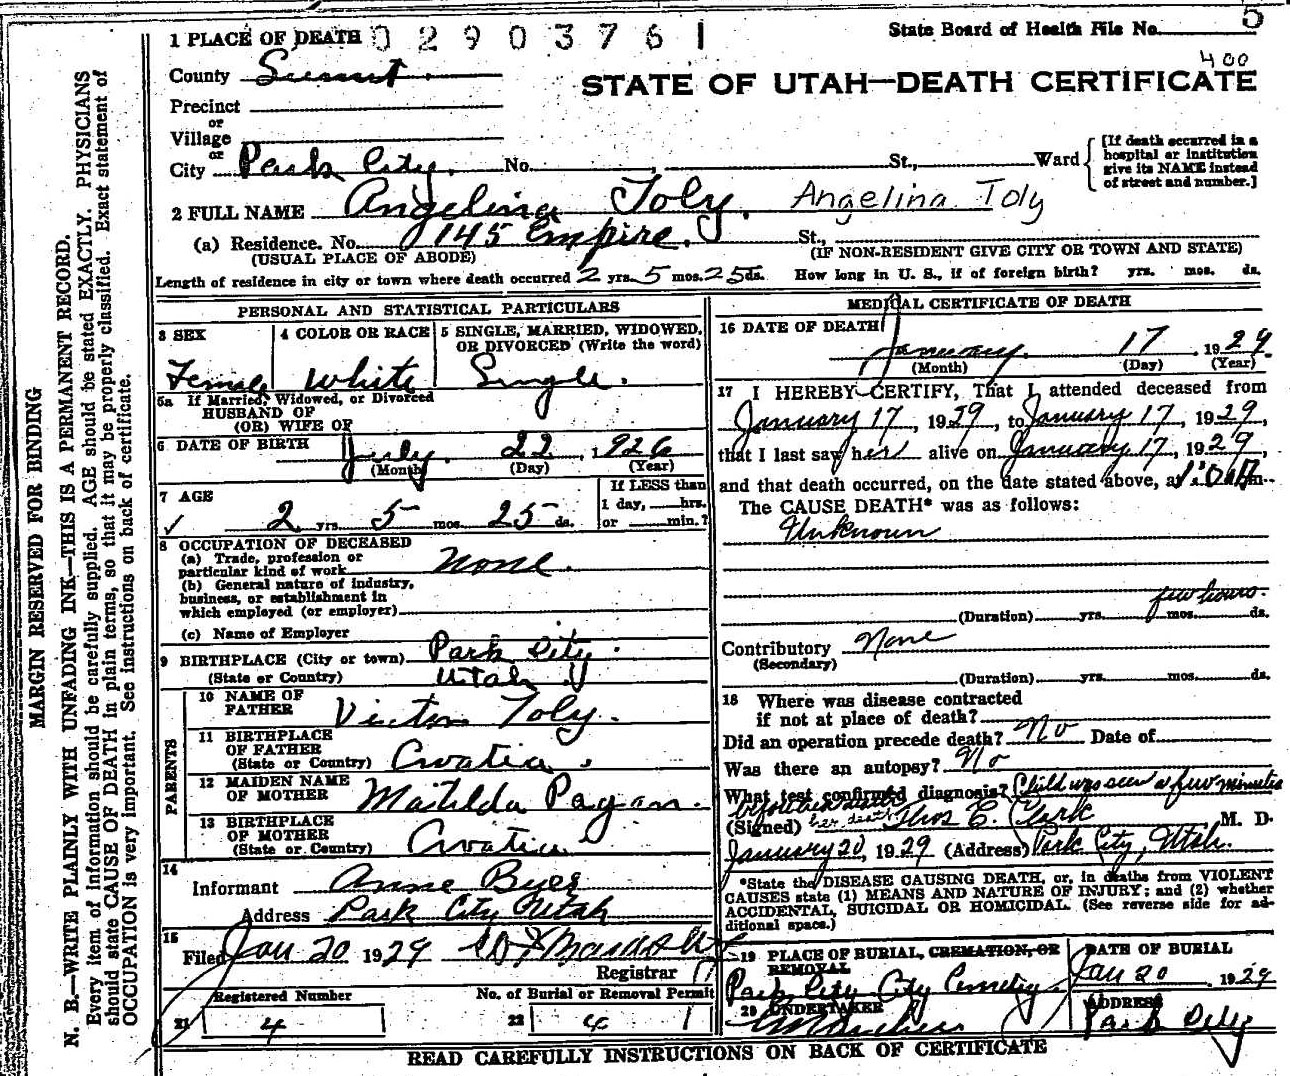 1 PLACE OF DEATH 02903761
State Board of Health File No. 5
400
County Summit.
STATE OF UTAH—DEATH CERTIFICATE
Precinct
or
Village
or
City Park City. No. St., Ward
[If death occurred in a hospital or institution give its NAME instead of street and number.]
2 FULL NAME Angelina Toly. Angelina Toly
(a) Residence. No. 145 Empire. St.,
(USUAL PLACE OF ABODE) (IF NON-RESIDENT GIVE CITY OR TOWN AND STATE)
Length of residence in city or town where death occurred 2 yrs. 5 mos. 25 ds. How long in U. S., if of foreign birth? yrs. mos. ds.
PERSONAL AND STATISTICAL PARTICULARS
3 SEX
Female
4 COLOR OR RACE
White
5 SINGLE, MARRIED, WIDOWED, OR DIVORCED (Write the word)
Single.
5a If Married, Widowed, or Divorced
HUSBAND OF
(OR) WIFE OF
6 DATE OF BIRTH July. 22, 1926
(Month) (Day) (Year)
7 AGE
2 yrs. 5 mos. 25 ds.
If LESS than
1 day, hrs.
or min.?
8 OCCUPATION OF DECEASED
(a) Trade, profession or
particular kind of work None.
(b) General nature of industry,
business, or establishment in
which employed (or employer)
(c) Name of Employer
9 BIRTHPLACE (City or town) Park City.
(State or Country) Utah
PARENTS
10 NAME OF
FATHER Victor Toly.
11 BIRTHPLACE
OF FATHER
(State or Country) Croatia.
12 MAIDEN NAME
OF MOTHER Matilda Pagan.
13 BIRTHPLACE
OF MOTHER
(State or Country) Croatia
14
Informant Anne Byer
Address Park City Utah
15
Filed Jan 20 1929
Registrar
Registered Number
21 4
No. of Burial or Removal Permit
22 4
MEDICAL CERTIFICATE OF DEATH
16 DATE OF DEATH
January. 17, 1929
(Month) (Day) (Year)
17 I HEREBY CERTIFY, That I attended deceased from
January 17, 1929, to January 17, 1929,
that I last saw her alive on January 17, 1929,
and that death occurred, on the date stated above, at m.
The CAUSE DEATH* was as follows:
Unknown
few hours.
(Duration) yrs. mos. ds.
Contributory None
(Secondary)
(Duration) yrs. mos. ds.
18 Where was disease contracted
if not at place of death?
Did an operation precede death? No Date of
Was there an autopsy? No
What test confirmed diagnosis? Child was seen a few minutes
before her death
(Signed) her death Thos E. Clark M. D.
January 20, 1929 (Address) Park City, Utah.
*State the DISEASE CAUSING DEATH, or, in deaths from VIOLENT
CAUSES state (1) MEANS AND NATURE OF INJURY; and (2) whether
ACCIDENTAL, SUICIDAL OR HOMICIDAL. (See reverse side for ad-
ditional space.)
19 PLACE OF BURIAL, CREMATION, OR
REMOVAL
Park City City Cemetery.
DATE OF BURIAL
Jan 20, 1929
20 UNDERTAKER
ADDRESS
Park City
READ CAREFULLY INSTRUCTIONS ON BACK OF CERTIFICATE
MARGIN RESERVED FOR BINDING
N. B.—WRITE PLAINLY WITH UNFADING INK—THIS IS A PERMANENT RECORD.
Every item of Information should be carefully supplied. AGE should be stated EXACTLY. PHYSICIANS
should state CAUSE OF DEATH in plain terms, so that it may be properly classified. Exact statement of
OCCUPATION is very important. See instructions on back of certificate.